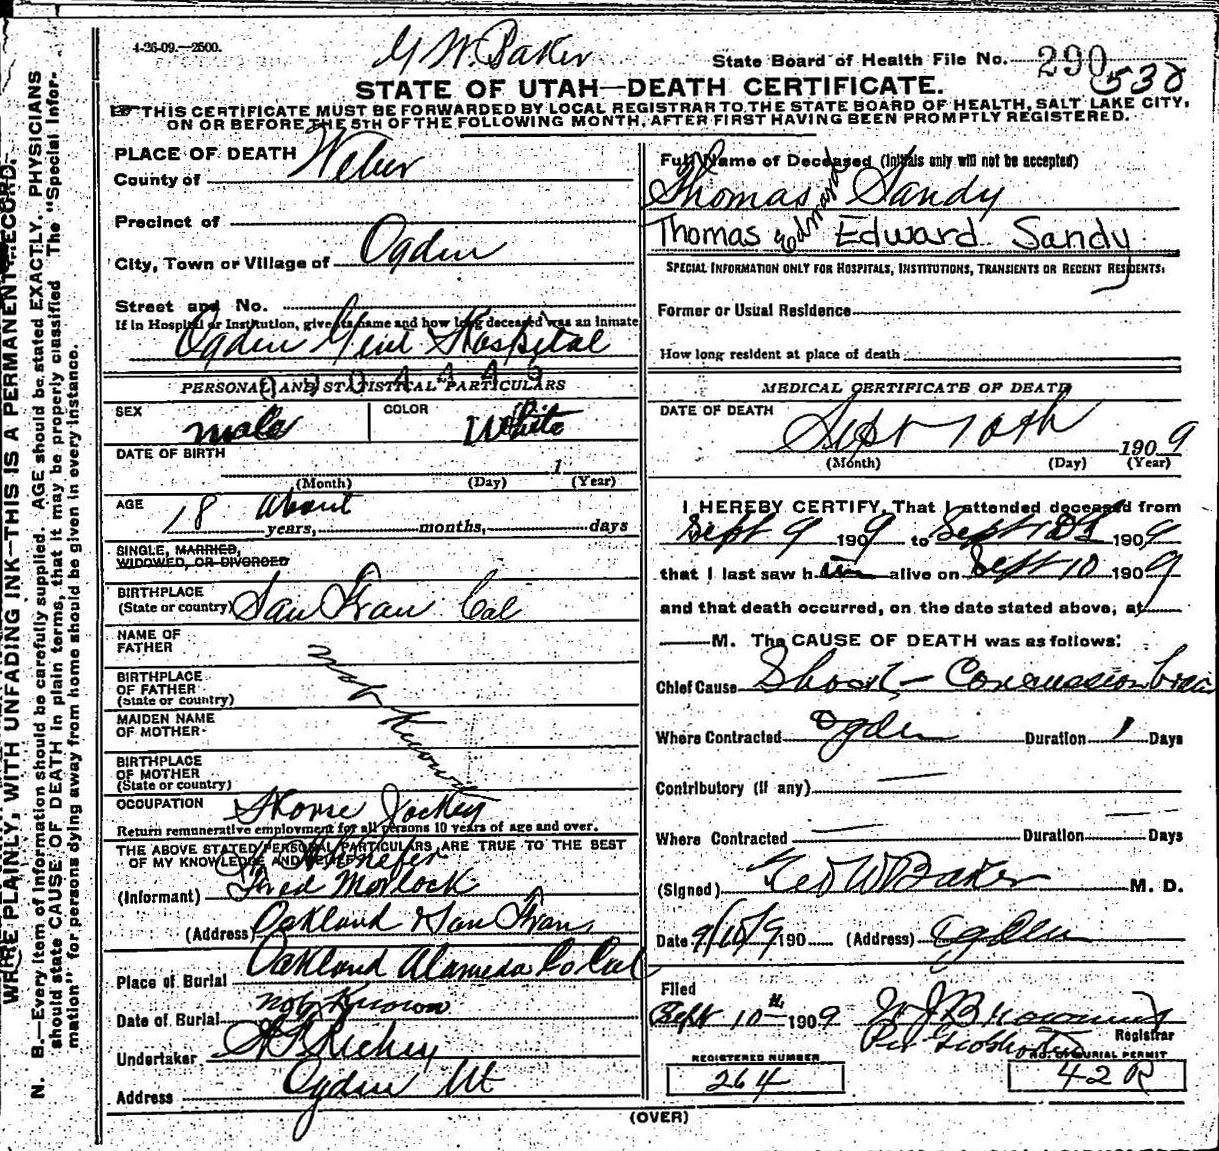 4-26-09.—2500.
G W. Baker
State Board of Health File No. 290 538
STATE OF UTAH—DEATH CERTIFICATE.
THIS CERTIFICATE MUST BE FORWARDED BY LOCAL REGISTRAR TO THE STATE BOARD OF HEALTH, SALT LAKE CITY,
ON OR BEFORE THE 5TH OF THE FOLLOWING MONTH, AFTER FIRST HAVING BEEN PROMPTLY REGISTERED.
WRITE PLAINLY, WITH UNFADING INK—THIS IS A PERMANENT RECORD.
N. B.—Every item of information should be carefully supplied. AGE should be stated EXACTLY. PHYSICIANS
should state CAUSE OF DEATH in plain terms, that it may be properly classified. The "Special Infor-
mation" for persons dying away from home should be given in every instance.
PLACE OF DEATH
County of Weber
Precinct of
City, Town or Village of Ogden
Street and No.
If in Hospital or Institution, give its name and how long deceased was an inmate
Ogden Genl Hospital
PERSONAL AND STATISTICAL PARTICULARS
SEX male COLOR White
DATE OF BIRTH 1
(Month) (Day) (Year)
AGE 18 About
years, months, days
SINGLE, MARRIED,
WIDOWED, OR DIVORCED
BIRTHPLACE
(State or country) San Fran Cal
NAME OF
FATHER
BIRTHPLACE
OF FATHER
(State or country)
MAIDEN NAME
OF MOTHER
BIRTHPLACE
OF MOTHER
(State or country)
not Known
OCCUPATION Horse Jockey
Return remunerative employment for all persons 10 years of age and over.
THE ABOVE STATED PERSONAL PARTICULARS ARE TRUE TO THE BEST
OF MY KNOWLEDGE AND BELIEF
(Informant) Fred Morlock
(Address) Oakland & San Fran
Place of Burial Oakland Alameda Co Cal
Date of Burial not Known
Undertaker
Address Ogden Ut
Full Name of Deceased (Initials only will not be accepted)
Thomas Edward Sandy
Thomas Edward Sandy
SPECIAL INFORMATION ONLY FOR HOSPITALS, INSTITUTIONS, TRANSIENTS OR RECENT RESIDENTS:
Former or Usual Residence
How long resident at place of death
MEDICAL CERTIFICATE OF DEATH
DATE OF DEATH
Sept 10th 1909
(Month) (Day) (Year)
I HEREBY CERTIFY, That I attended deceased from
Sept 9 1909 to Sept 10 1909
that I last saw him alive on Sept 10 1909
and that death occurred, on the date stated above, at
M. The CAUSE OF DEATH was as follows:
Chief Cause Shock - Concussion brain
Where Contracted Ogden Duration 1 Days
Contributory (if any)
Where Contracted Duration Days
(Signed) Geo W Baker M. D.
Date 9/10/9 190 (Address) Ogden
Filed
Sept 10th 1909 W J Browning
Registrar
REGISTERED NUMBER
264
NO. OF BURIAL PERMIT
42 R
(OVER)